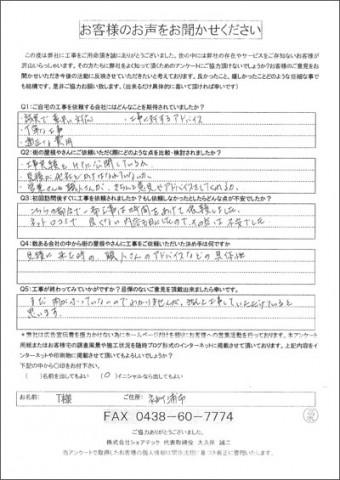 お客様のお声をお聞かせください
この度は弊社に工事をご用命頂き誠にありがとうございました。世の中には弊社の存在やサービスをご存知ないお客様が
沢山いらっしゃいます。その方たちに弊社をよく知って頂くためのアンケートにご協力頂けないでしょうか？お客様のご意見をお
聞かせいただき今後の活動に反映させていただきたいと考えております。良かったこと、嬉しかったことどのような些細な事で
も結構です。是非ご協力お願い致します。（出来るだけ具体的に書いて頂ければ幸いです）
Q1：ご自宅の工事を依頼する会社にはどんなことを期待されていましたか？
・誠実で素早い対応 ・工事に対するアドバイス
・丁寧な工事
・適正な費用
Q2：街の屋根やさんにご依頼いただく際にどのような点を比較・検討されましたか？
・工事実績を HPに公開しているか
・見積が
・営業さんは職人さんが、きちんと意見やアドバイスをしてくれるか
Q3：初回訪問後すぐに工事を依頼されましたか？もし依頼しなかったとしたらどんな点が不安でしたか？
こちらの都合で
ネット口コミで 良くない内容も目にしたので、その点は不安でした
Q4：数ある会社の中から街の屋根やさんに工事をご依頼いただいた決め手は何ですか
見積に来た時の、職人さんのアドバイスなどの具体性
Q5：工事が終わってみていかがですか？忌憚のないご意見を頂戴出来ましたら幸いです。
まだ雨がふっていないのでわかりませんが、
思います。
＊弊社は広告宣伝費を極力かけない為にホームページだけを頼りにお客様への営業活動を行っております。本アンケート
用紙またはお客様宅の調査風景や施工状況を随時ブログ形式のインターネットに掲載させて頂いております。上記内容をイ
ンターネットや印刷物に掲載させて頂いてもよろしいでしょうか？
下記の中から○印をお付け下さい。
（ ）名前を出してもよい （○）イニシャルなら出してもよい
お名前： T様 ご住所：
FAX 0438-60-7774
ご協力ありがとうございました。
株式会社シェアテック 代表取締役 大久保 誠二
当アンケートで取得したお客様の個人情報は